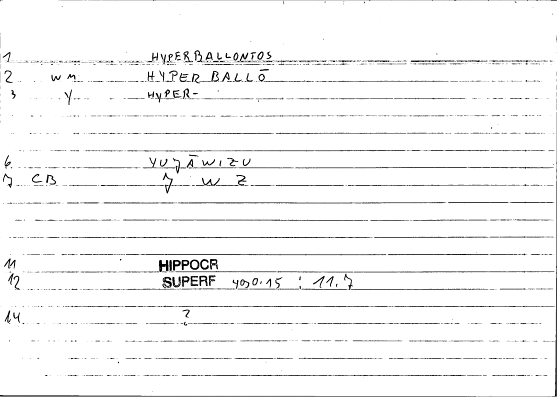 1 HYPERBALLONTOS
2 WM HYPERBALLŌ
3 Y HYPER-
6 YUJĀWIZU
7 CB J W Z
11 HIPPOCR
12 SUPERF 4090.15 : 11.7
14 ?